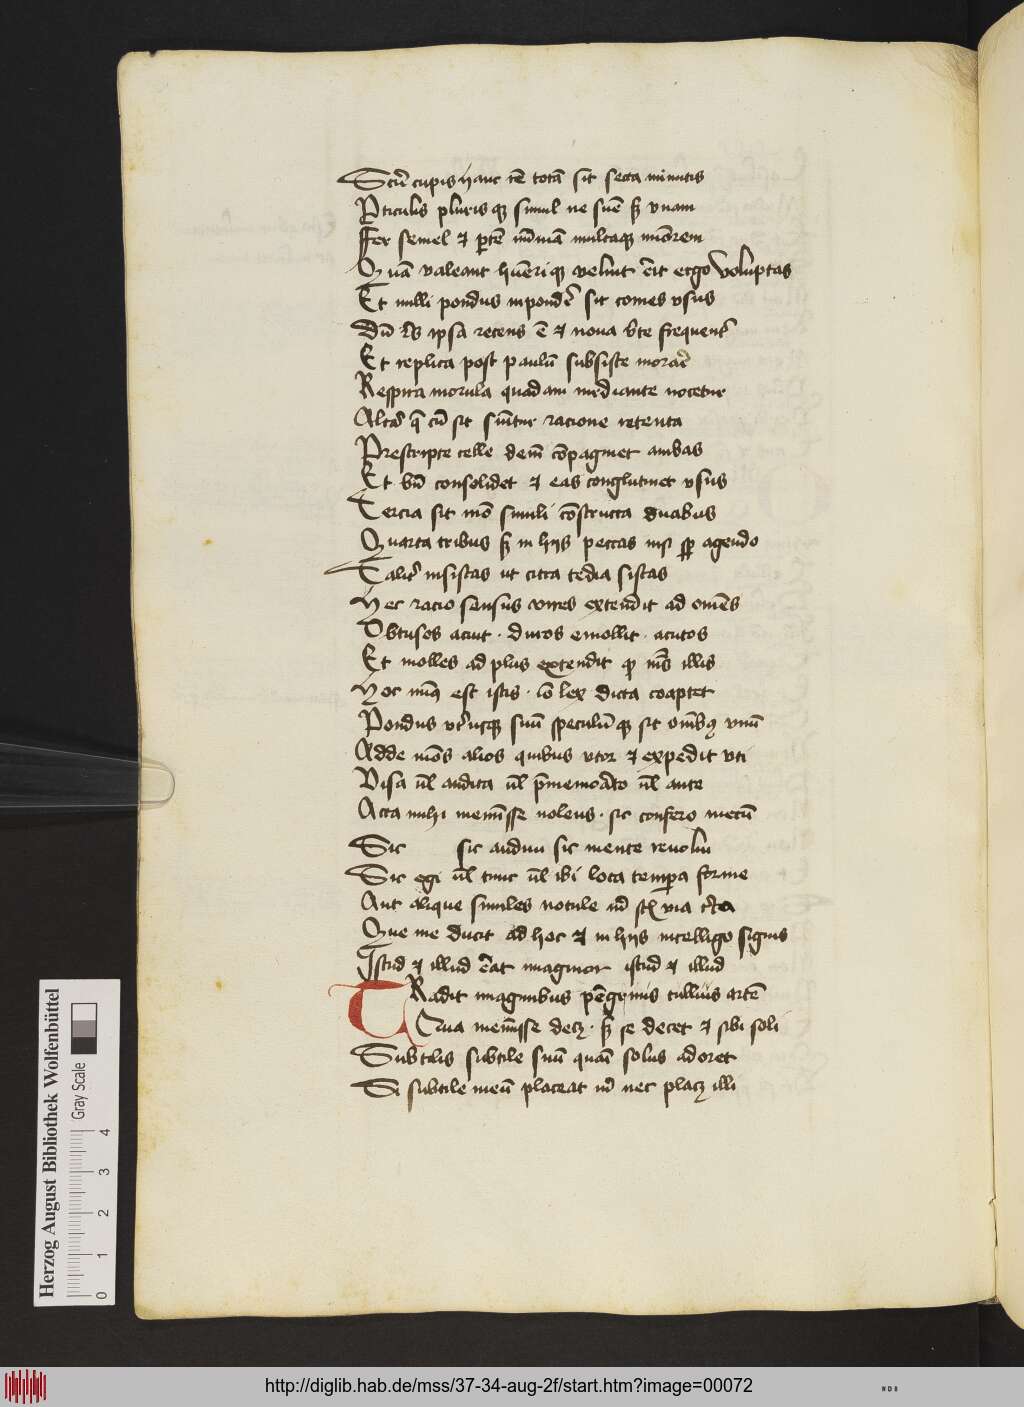 Scir̄ cupis hanc rē totā sit secta minutis
Pticulis pluris qz simul ne suē sz vnam
Ffer semel et ptē mīmā multaqz miōrem
Quā valeant hūeriqz velint erit ergo voluptas
Et nulli pondus inpondē sit comes vsus
Dū ipsa recens ē et noua vte frequent
Et replica post paulū subsiste mora
Respira morula quadam mediante nocetur
Alta q cū sit ratione retenta
Prescripte celle dem cōpaginet ambas
Et bn consolidet et eas conglutinet vsus
Tercia sit mō simili cōstructa duabus
Quarta tribus sz in hijs peccas nisi sp agendo
Talit insistas ut citra tedia sistas
Hec racio sensus vires extendit ad omēs
Obtusos acuit . duros emollit . acutos
Et molles ad plus extendit illis
Hoc est istis . iō lex dicta coaptet
Pondus vtriusqz suū speculūqz sit omībz vnū
Adde mōs alios quibus vtor et expedit vti
Visa ul audita ul pmemorato ul ante
Acta mihi meminisse uolens . sic confero mecū
Sic sic audiui sic mente reuolui
Sic egi ul tunc ul ibi loca tempa forme
Aut alique similes notule uia
Que me ducit ad hoc et in hijs intelligo signis
Istud et illud erat imaginor istud et illud
TRadit imaginibus pegrinis tullius artē
Qua meminisse decz . sz se decet et sibi soli
Subtilis subtile suū quasi solus adoret
Si subtile meū placeat nec placz illi
Herzog August Bibliothek Wolfenbüttel
Gray Scale
0 1 2 3 4
http://diglib.hab.de/mss/37-34-aug-2f/start.htm?image=00072